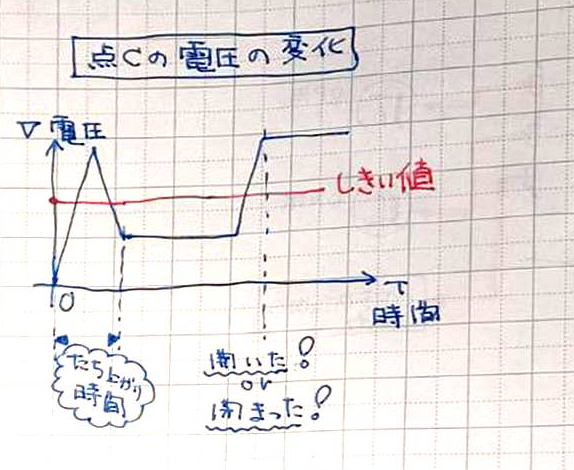 点Cの電圧の変化
V 電圧
しきい値
0
T
時間
たち上がり
時間
開いた!
or
閉まった!